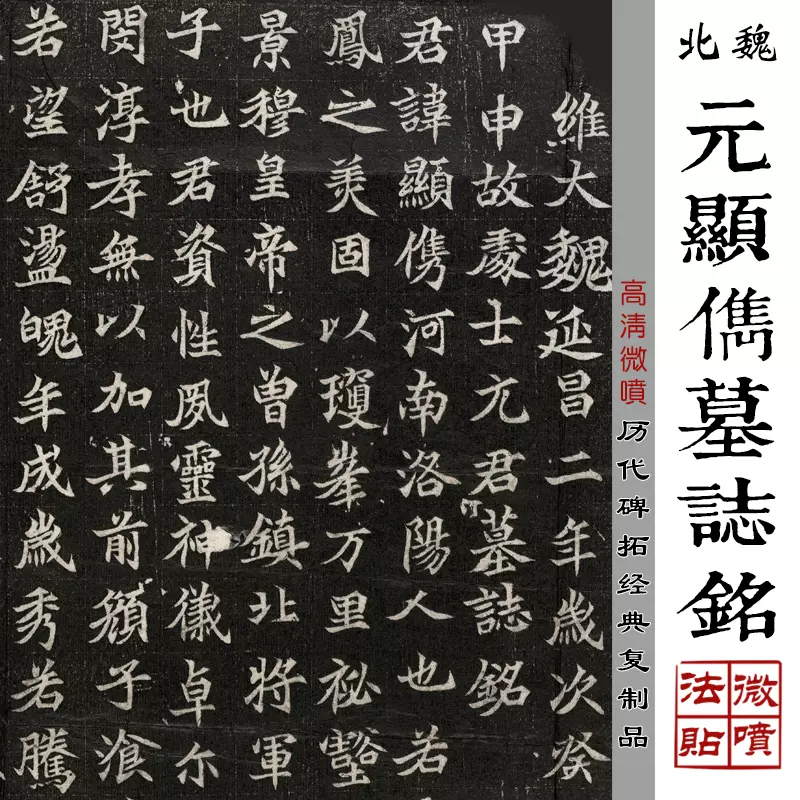 北魏
元顯儁墓誌銘
微噴
法貼
高清微噴
历代碑拓经典复制品
維大魏延昌二年歲次癸
甲申故處士元君墓誌銘
君諱顯儁河南洛陽人也若
鳳之美固以瓊峯万里祕壑
景穆皇帝之曾孫鎮北將軍
子也君資性夙靈神儀卓尓
閔淳孝無以加其前顏子飡
若望舒盪魄年成歲秀若騰